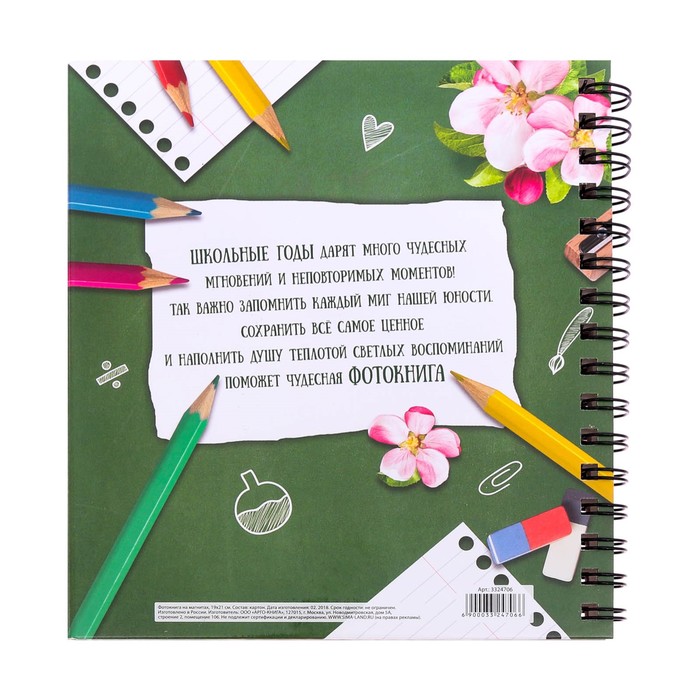 ШКОЛЬНЫЕ ГОДЫ ДАРЯТ МНОГО ЧУДЕСНЫХ
МГНОВЕНИЙ И НЕПОВТОРИМЫХ МОМЕНТОВ!
ТАК ВАЖНО ЗАПОМНИТЬ КАЖДЫЙ МИГ НАШЕЙ ЮНОСТИ.
СОХРАНИТЬ ВСЁ САМОЕ ЦЕННОЕ
И НАПОЛНИТЬ ДУШУ ТЕПЛОТОЙ СВЕТЛЫХ ВОСПОМИНАНИЙ
ПОМОЖЕТ ЧУДЕСНАЯ ФОТОКНИГА
Фотокнига на магнитах, 19х21 см. Состав: картон. Дата изготовления: 02. 2018. Срок годности: не ограничен.
Изготовлено в России. Изготовитель: ООО «АРТО-КНИГА», 127015, г. Москва, ул. Новодмитровская, дом 5А,
строение 2, помещение 106. Не подлежит сертификации и декларированию. WWW.SIMA-LAND.RU (на правах рекламы)
Арт.: 3324706
6 900033 247064